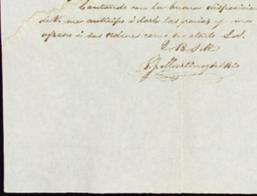 Contando con la buena disposicion
de V. me anticipo á darle las gracias y me
ofrezco á sus ordenes como su atento S. S.
Q. B. S. M.
P. J. Martinez del Rio